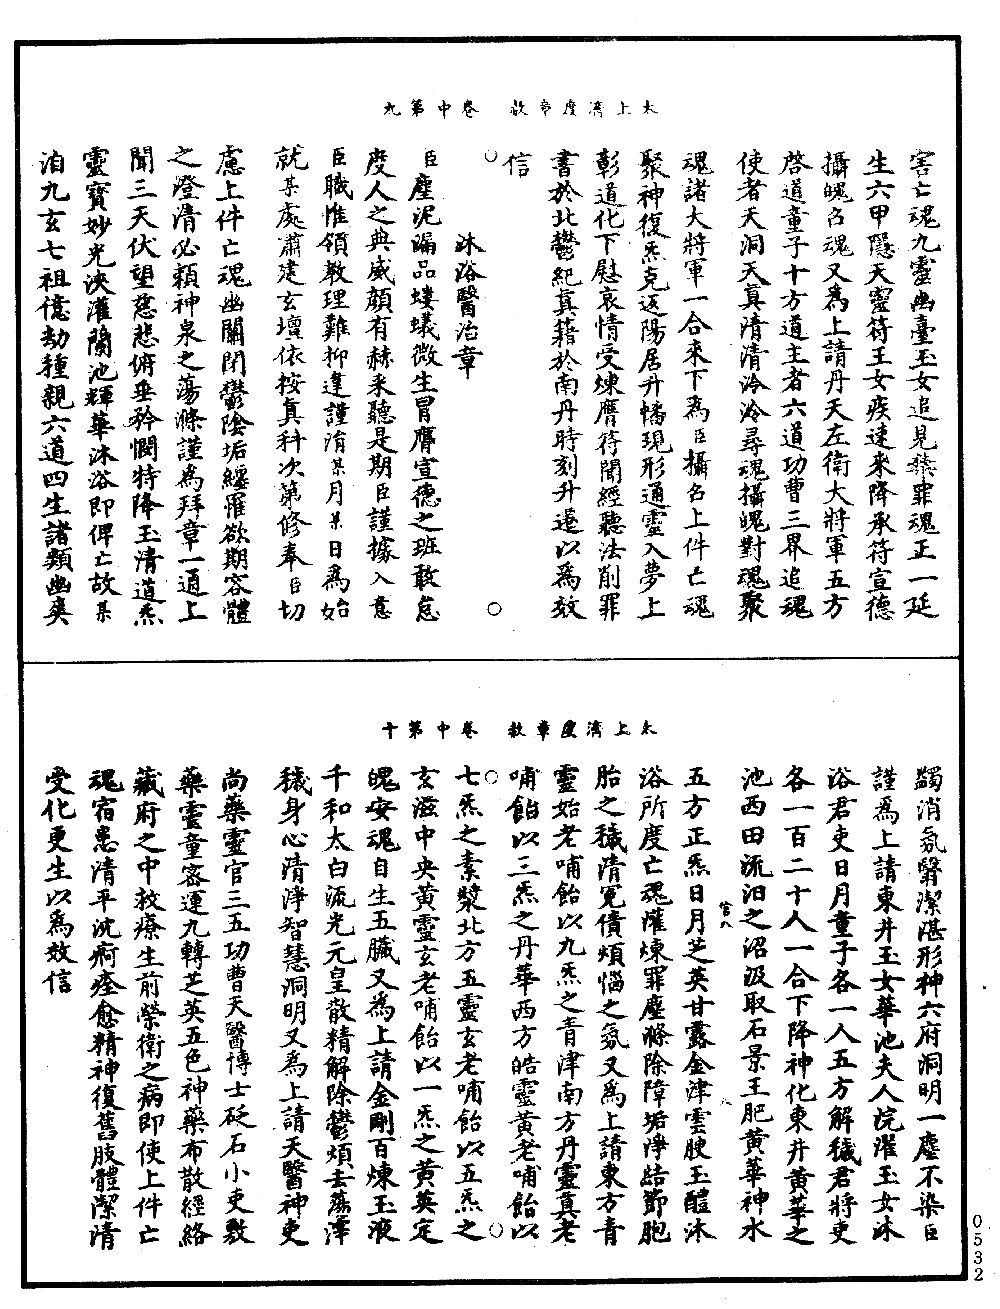 太上濟度章赦　卷中第九
害亡魂九靈幽臺玉女追見繫罪魂正一延
生六甲隱天靈符玉女疾速來降承符宣德
攝魄召魂又為上請丹天左衛大將軍五方
啓道童子十方道主者六道功曹三界追魂
使者天洞天真清清泠泠尋魂攝魄對魂聚
魂諸大將軍一合來下為臣攝召上件亡魂
聚神復炁克返陽居升幡現形通靈入夢上
彰道化下慰哀情受煉膺符聞經聽法削罪
書於北鬱紀真籍於南丹時刻升遷以為效
信
沐浴醫治章
臣塵泥漏品螻蟻微生冒膺宣德之班敢怠
度人之典威顔有赫釆聽是期臣謹據入意
臣職惟領教理難抑違謹涓某月某日為始
就某處肅建玄壇依按真科次第修奉臣切
慮上件亡魂幽關閉鬱陰垢纏羅欲期容體
之澄清必賴神泉之蕩滌謹為拜章一通上
聞三天伏望慈悲俯垂矜憫特降玉清道炁
靈寶妙光浹灌蘭池輝華沐浴即俾亡故某
洎九玄七祖億劫種親六道四生諸類幽爽
太上濟度章赦　卷中第十
蠲消氛翳潔湛形神六府洞明一塵不染臣
謹為上請東井玉女華池夫人浣濯玉女沐
浴君吏日月童子各一人五方解穢君將吏
各一百二十人一合下降神化東井黃華之
池西田流汨之沼汲取石景王肥黃華神水
五方正炁日月芝英甘露金津雲腴玉醴沐
浴所度亡魂灌煉罪塵滌除障垢淨結節胞
胎之穢清冤債煩惱之氛又為上請東方青
靈始老哺飴以九炁之青津南方丹靈真老
哺飴以三炁之丹華西方皓靈黃老哺飴以
七炁之素漿北方五靈玄老哺飴以五炁之
玄滋中央黃靈玄老哺飴以一炁之黃英定
魄安魂自生五臟又為上請金剛百煉玉液
千和太白流光元皇散精解除鬱煩去蕩滓
穢身心清淨智慧洞明又為上請天醫神吏
尚藥靈官三五功曹天醫博士砭石小吏敷
藥靈童密運九轉芝英五色神藥布散經絡
藏府之中救療生前榮衛之病即使上件亡
魂宿患清平沈痾痊愈精神復舊肢體潔清
受化更生以為效信
0532